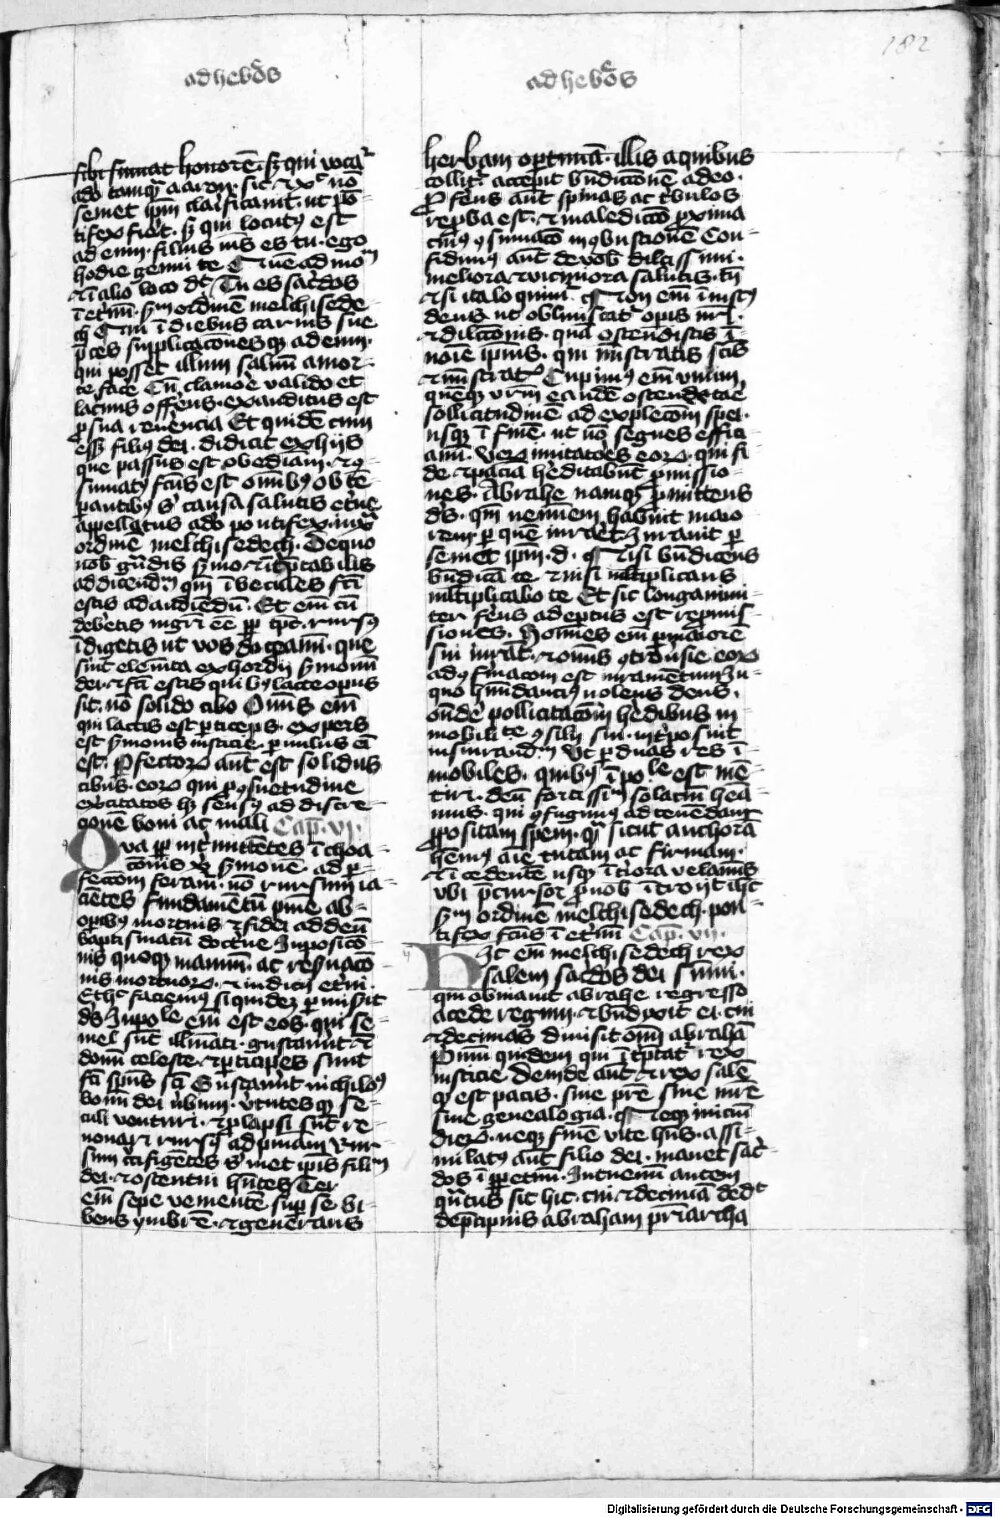 182
ad hebreos
ad hebreos
sibi sumat honorem. sz qui vocat᷑
a deo tamq̄ aaron. sic et xp̄c nō
semet ip̄m clarificauit. ut pō-
tifex fiēt. sz qui locut9 est
ad eum. filius meus es tu. ego
hodie genui te
et ī alio loco dc̄ Tu es sac̄dos
ī et̄nū. sm̄ ordinē melchisede-
ch Qui ī diebus carnis sue
p̄ces supplicacōnesq; ad eum.
qui posset illum saluū a mor-
te face Cū clamore valido et
lacrimis offerens. exauditus est
ꝓ sua reuerencia Et quidē cum
esset filius dei. didicit ex hijs
que passus est obediam. et 9-
sumat9 factus est omībus obtē-
perantibus sibi causa salutis et̄ne
appellatus a deo pontifex iuxta
ordinē melchisedech. De quo
nob grandis sermo et int̄p̄tabilis
ad dicendum. qm̄ ībecilles facti
estis ad audiendū. Et em̄ cū
deberetis mgr̄i eē ꝓpt̄ tp̄c. rursus
īdigetis ut vos doceamī. que
sint elemēta exhordij sermonū
dei. et facti estis quibus lacte opus
sit. nō solido cibo Omīs em̄
qui lactis est particeps. expers
est sermonis iusticie. paruulus em̄
est. Perfectorum aut̄ est solidus
cibus. eorum qui ꝓ 9suetudine
exercitatos hn̄t sensus ad discre-
cōnem boni ac mali Cap. vi.
Qua ꝓpt̄ int̄mittētes īchoa-
cōnis xp̄i sermonē. ad per-
fectōm feramur. nō rursum ia-
ciētes fundamētū pnīe ab
operibus mortuis et fidei ad deū
baptismatū doctrīe Imposicō-
nis quoq; manuū. ac resurrectiō-
nis mortuorum. et iudicij et̄ni.
Et hoc faciemus siquidem permiserit
ds̄ Impole em̄ est eos. qui se-
mel sūt illuīati. gustauer̄t et
donū celeste. et participes sunt
facti sp̄us sc̄i Gustauer̄t nichilo9
bonū dei verbum. virtutesq; se-
culi venturi. et ꝓlapsi sūt re-
nouari rursus ad pniam Rur-
sum crucifigētes semet ip̄is filiū
dei. et ostentui hn̄tes Ter
em̄ sepe venientē sup se bi-
bens ymbrē. et generans
herbam optunā. illis a quibus
colitur. accepit bn̄dictionē a deo.
Proferens aut̄ spinas ac tribulos
reproba est. et maledicto proxima
cuius 9sumacō in 9bustionem Con-
fidimus aut̄ de vob̄ dilectissimi.
meliora et viciniora salutis. tn̄
et si ita loquimur. Non em̄ iniustus
deus ut obliuiscatur opis nr̄i.
et dilectōnis. quā ostendistis ī
noīe ipius. qui ministratis sc̄is
et ministratis Cupimus em̄ vnum
quēq; vr̄m eandē ostendere
sollicitudinē ad expletōm spei.
usq; ī finē. ut nō segnes effici-
amī. Verū imitatores eorum. qui fi-
de et pacia hereditabūt promissio-
nes. Abrahe namq; promittens
ds̄. qm̄ neminem habuit maio-
rem per quē iuraret Iurauit per
semet ip̄m. d. Nisi bn̄dicens
bn̄dicā te et nisi multiplicans
multiplicabo te Et sic longanimi-
ter ferens adeptus est repmis-
siones. Homīes em̄ ꝑ maiorē
sui iurāt. et omīs 9trouersie eorum
ad 9firmacōm est iuramentum In
quo habundancius volens deus.
ondē pollicitacōīs heredibus in-
mobilitatē 9silij sui int̄posuit
iusiurandum Vt per duas res ī-
mobiles. quibus ī pole est mē-
tiri. deū fortissimū solaciū hea-
mus. qui 9fugimus ad tenendam
ꝓpositam spem. quā sicut anchorā
hēmus aīe tutam ac firmam.
et īcedentē usq; ī ītiora velamīs
vbi p̄cursor pro nob̄ ītroijt ihc̄
sm̄ ordinē melchisedech. pon-
tifex factus ī et̄nū Cap. vii.
Hic em̄ melchisedech rex
salem sacerdos dei sūmi.
qui obuiauit abrahe regresso
a cede regum. et bn̄dixit ei. cui
et decimas diuisit omnī abrahā
Primū quidem qui īt̄p̄tatur rex
iusticie Deinde aut̄ et rex salē
qd̄ est pacis. sine p̄re sine mr̄e
sine genealogia. Neq; inicium
dierum. neq; finē vite hn̄s. assi-
milatus aut̄ filio dei. manet sac̄-
dos ī ꝑpetuū. Intuemī autem
quantus sit hic. cui et decimā dedit
de p̄cipuis abraham pr̄iarcha
Digitalisierung gefördert durch die Deutsche Forschungsgemeinschaft - DFG